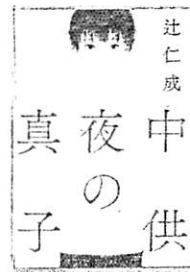 辻仁成
真夜中
の
子供